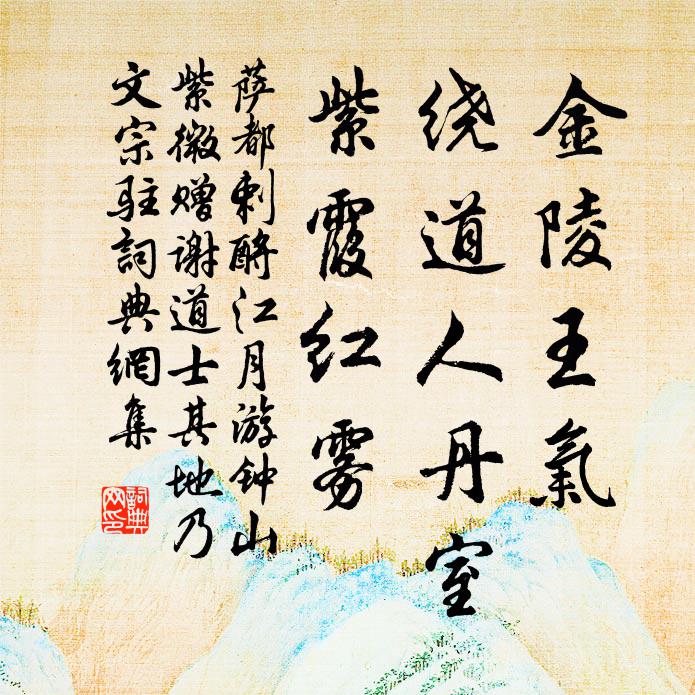 金陵王氣
绕道人丹室
紫霞红雾
萨都剌酹江月游钟山
紫微赠谢道士其地乃
文宗驻詞典網集
詞典
网印